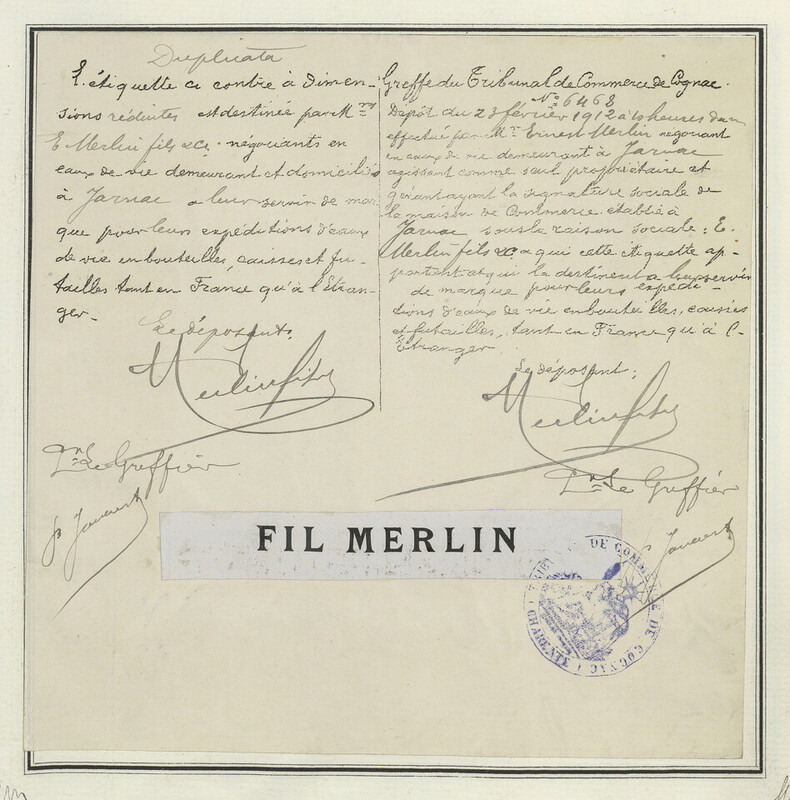 Duplicata
L'étiquette ci contre à dimen-
sions réduites est destinée par M.rs
E. Merlin fils & Cie négociants en
eaux de vie demeurant et domiciliés
à Jarnac a leur servir de mar-
que pour leurs expéditions d'eaux
de vie en bouteilles, caisses et fu-
tailles tant en France qu'à l'Etran-
ger.
Le déposant,
Merlin fils
Le Greffier
Greffe du Tribunal de Commerce de Cognac.
No 6468
Dépôt du 23 février 1912 à heures
effectué par M. Ernest Merlin négociant
en eaux de vie demeurant à Jarnac
agissant comme seul propriétaire et
gérant ayant la signature sociale de
la maison de Commerce établie à
Jarnac sous la raison sociale: E.
Merlin fils & C. a qui cette étiquette ap-
partient et qui la destinent a leur servir
de marque pour leurs expédi-
tions d'eaux de vie en bouteilles, caisses
et futailles, tant en France qu'à l'-
Etranger.
Le déposant:
Merlin fils
Le Greffier
FIL MERLIN
TRIBUNAL DE COMMERCE DE COGNAC
CHARENTE